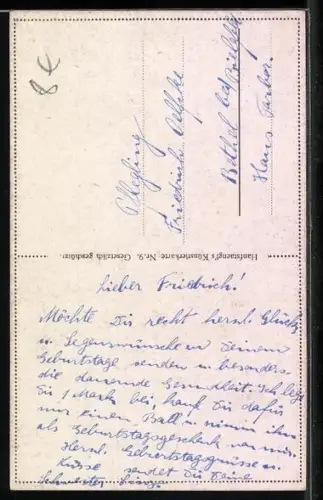 8 €
Pflegling
Friedrich
Bethel bei Bielefeld
Hans
Hanfstaengl's Künstlerkarte Nr. 9. Gesetzlich geschützt.
Lieber Friedrich!
Möchte Dir recht herzl. Glück
u. Segenswünsche zu Deinem
Geburtstage senden u. besonders
die dauernde Gesundheit. Ich lege
Dir 1 Mark bei, kauf Dir dafür
nur einen Ball u. nimm ihn
als Geburtstagsgeschenk von mir.
Herzl. Geburtstagsgrüsse u.
Küsse sendet Dir Deine
Schwester